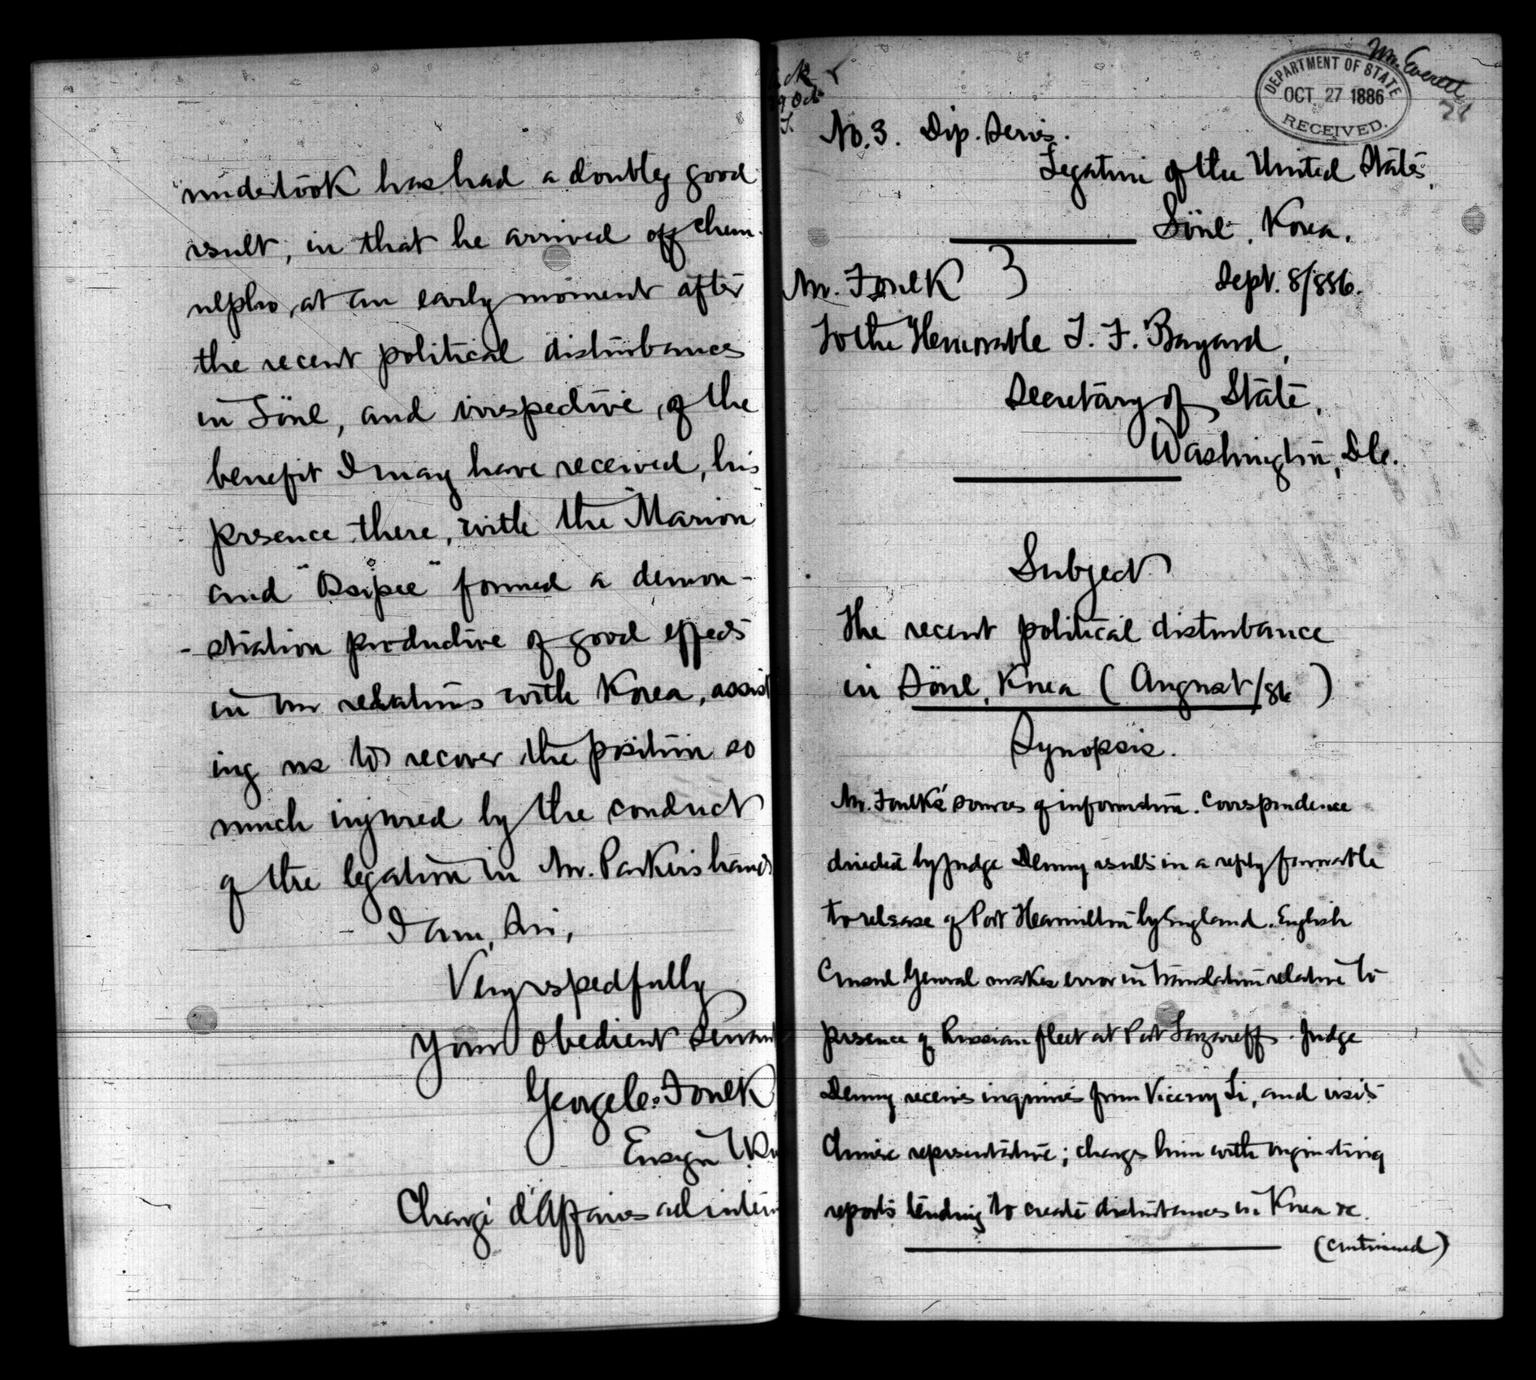 undertook has had a doubly good
result, in that he arrived off Chem-
ulpho, at an early moment after
the recent political disturbances
in Söul, and irrespective, of the
benefit I may have received, his
presence there, with the "Marion"
and "Ossipee" formed a demon-
stration productive of good effects
in our relations with Korea, assist-
ing us to recover the position so
much injured by the conduct
of the legation in Mr. Parker's hands
I am, Sir,
Very respectfully
Your obedient servant
George C. Foulk
Ensign U.S.N.
Chargé d'Affaires ad interim
Mr. Everett
DEPARTMENT OF STATE
OCT. 27 1886
RECEIVED.
No. 3. Dip. Series.
Legation of the United States,
Söul, Korea.
Mr. Foulk }
Sept. 8/886.
To the Honorable T. F. Bayard,
Secretary of State,
Washington, D.C.
Subject
The recent political disturbance
in Söul, Korea (August/86)
Synopsis.
Mr. Foulk's sources of information. Correspondence
directed by Judge Denny results in a reply favorable
to release of Port Hamilton by England. English
Consul General makes error in translation relative to
presence of Russian fleet at Port Lazareff. Judge
Denny receives inquiries from Viceroy Li, and visits
Chinese representative; charges him with originating
reports tending to create disturbances in Korea &c.
(continued)